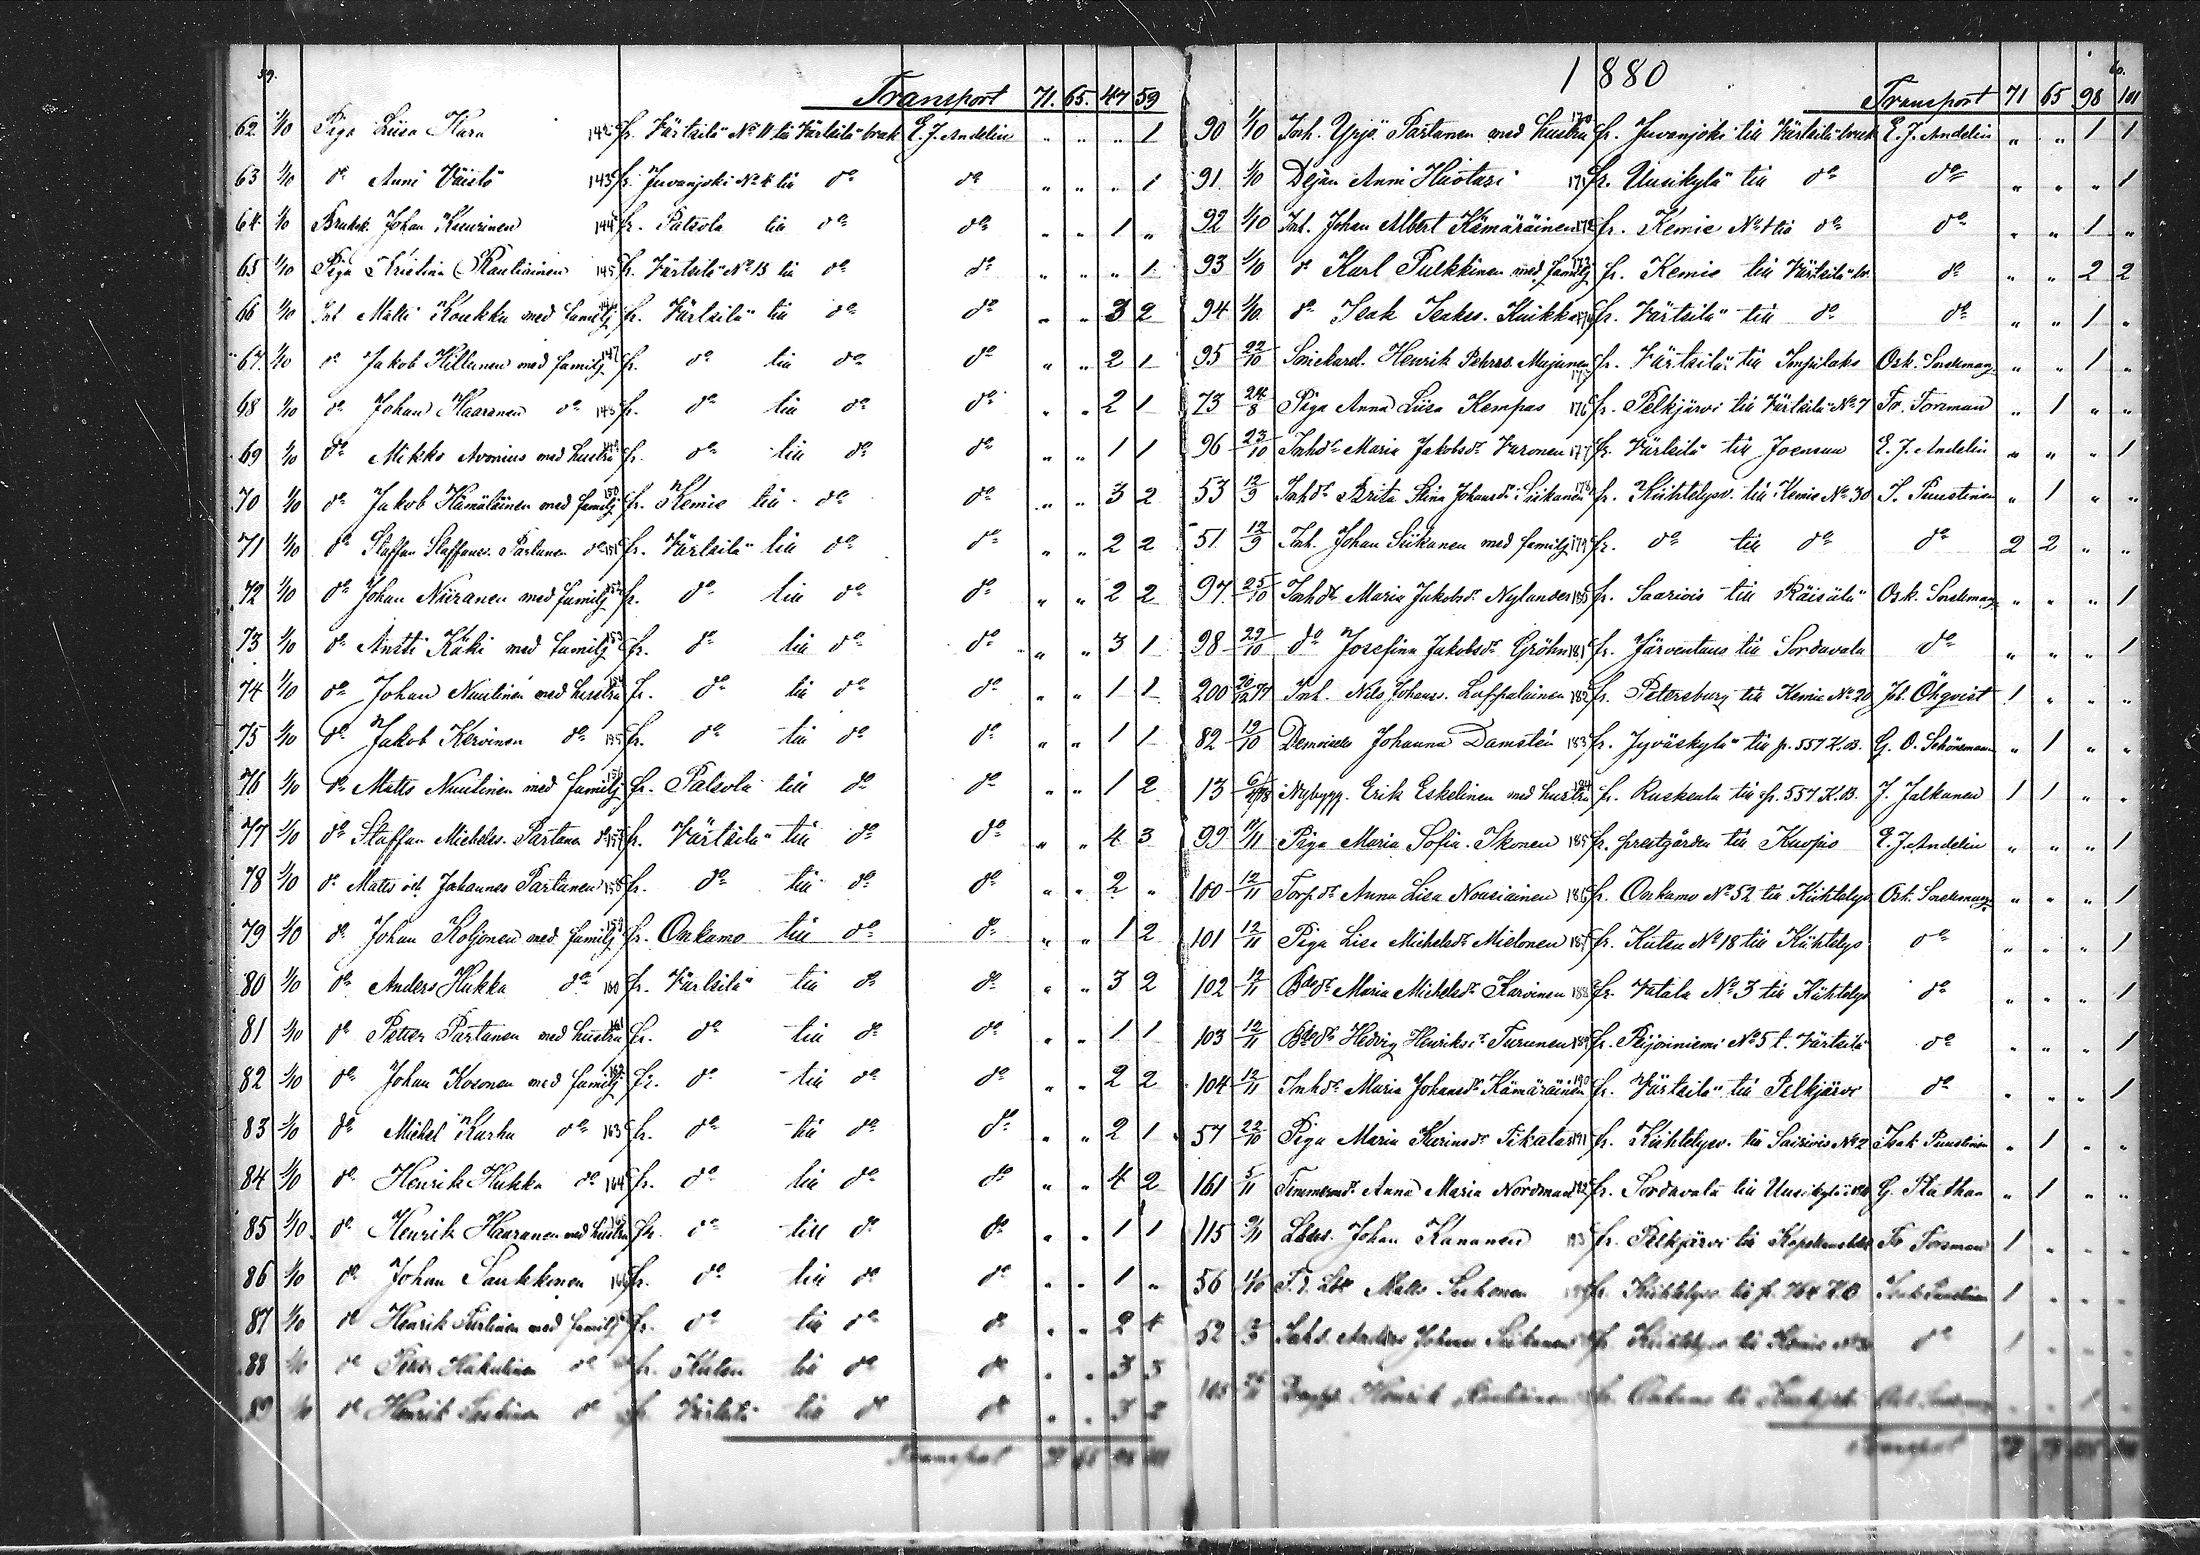 59.
Transport 71. 65. 47 59
62 1/10 Piga Liisa Kara 142 fr. Värtsilä No 11 till Värtsilä bruk E. J. Andelin " " " 1
63 1/10 do Anni Väistö 143 fr. Juvanjoki No 4 till do do " " " 1
64 1/10 Johan Kuurinen 144 fr. Patsola till do do " " 1 "
65 1/10 Piga Kristina Rautiainen 145 fr. Värtsilä No 15 till do do " " " 1
66 1/10 Inh. Matti Koukku med familj fr. Värtsilä till do do " " 3 2
67. 1/10 do Jakob Hillunen med familj 147 fr. do till do do " " 2 1
68 1/10 do Johan Haaranen do 148 fr. do till do do " " 2 1
69 1/10 do Mikko Avonius med hustru fr. do till do do " " 1 1
70 1/10 do Jakob Hämäläinen med familj 150 fr. Kemie till do do " " 3 2
71 1/10 do Staffan Staffanss. Partanen do 151 fr. Värtsilä till do do " " 2 2
72 1/10 do Johan Niiranen med familj 152 fr. do till do do " " 2 2
73 1/10 do Antti Käki med familj 153 fr. do till do do " " 3 1
74 1/10 do Johan Nuutinen med hustru 154 fr. do till do do " " 1 1
75 1/10 do Jakob Kervinen do 155 fr. do till do do " " 1 1
76 1/10 do Matts Nuutinen med familj 156 fr. Patsola till do do " " 1 2
77 1/10 do Staffan Michelss. Partanen do 157 fr. Värtsilä till do do " " 4 3
78 1/10 do Matts och Johannes Partanen 158 fr. do till do do " " 2 "
79 1/10 do Johan Koljonen med familj 159 fr. Onkamo till do do " " 1 2
80 1/10 do Anders Hukka do 160 fr. Värtsilä till do do " " 3 2
81 1/10 do Petter Partanen med hustru 161 fr. do till do do " " 1 1
82 1/10 do Johan Kosonen med familj 162 fr. do till do do " " 2 2
83 1/10 do Michel Karhu do 163 fr. do till do do " " 2 1
84 1/10 do Henrik Hukka do 164 fr. do till do do " " 4 2
85 1/10 do Henrik Haaranen med hustru 165 fr. do till do do " " 1 1
86 1/10 do Johan Saukkonen 166 fr. do till do do " " 1 "
87 1/10 do Henrik med familj fr. do till do do " " 2 4
88 1/10 do Hakulinen do fr. Kuten till do do " " 3 3
89 1/10 do Henrik do fr. Värtsilä till do do " " 3 2
Transport
1880
60.
Transport 71 65 98 101
90 1/10 Inh. Yrjö Partanen med hustru 170 fr. Juvanjoki till Värtsilä bruk E. J. Andelin " " 1 1
91. 1/10 Dejan Anni Huotari 171 fr. Uusikylä till do do " " " 1
92 1/10 Inh. Johan Albert Kämäräinen 172 fr. Kemie No 4 till do do " " 1 "
93 1/10 do Karl Pulkkinen med familj 173 fr. Kemie till Värtsilä br. do " " 2 2
94 1/10 do Isak Isakss. Kuikka 174 fr. Värtsilä till do do " " 1 "
95 22/10 Henrik Peterss. Majunen 175 fr. Värtsilä till Impilaks Osk. " " 1 "
73 24/8 Piga Anna Liisa Kempas 176 fr. Pelkjärvi till Värtsilä No 7 Fr. Forsman " 1 " "
96 23/10 Inhdr Maria Jakobsdr Varonen 177 fr. Värtsilä till Joensuu E. J. Andelin " " " 1
53 12/9 Inhdr Brita Stina Johansdr Siikanen 178 fr. Kiihtelysv. till Kemie No 30 I. Puustinen " 1 " "
51 12/9 Inh. Johan Siikanen med familj 179 fr. do till do do 2 2 " "
97. 25/10 Inhdr Maria Jakobsdr Nylander 180 fr. Saarivis till Räisälä Osk. " " " 1
98 29/10 do Josefina Jakobsdr Gröhn 181 fr. Järventaus till Sordavala do " " " 1
200 Inh. Nils Johanss. Lappalainen 182 fr. Petersburg till Kemie No 20 Joh. Öhqvist 1 " " "
82 19/10 Demoiselle Johanna Damstén 183 fr. Jyväskylä till p. 557 K.B. G. O. Schöneman " 1 " "
13 Nybygg. Erik Eskelinen med hustru 184 fr. Ruskeala till p. 557 K.B. J. Jalkanen 1 1 " "
99 11/11 Piga Maria Sofia Ikonen 185 fr. prestgården till Kuopio E. J. Andelin " " " 1
100 12/11 Torp.dr Anna Lisa Nousiainen 186 fr. Onkamo No 52 till Kiihtelys Osk. " " " 1
101 12/11 Piga Lisa Michelsdr Mielonen 187 fr. Kuten No 18 till Kiihtelys do " " " 1
102 12/11 Bdedr Maria Michelsdr Karvinen 188 fr. Vatala No 3 till Kiihtelys do " " " 1
103 12/11 Bdedr Hedvig Henriksdr Turunen 189 fr. Peijonniemi No 5 t. Värtsilä do " " " 1
104 12/11 Inhdr Maria Johansdr Kämäräinen 190 fr. Värtsilä till Pelkjärvi do " " " 1
57 22/10 Piga Maria Karinsdr Tikka 191 fr. Kiihtelysv. till Saarivis No 2 Isak Puustinen " 1 " "
161 5/11 Timmermdr Anna Maria Nordman 192 fr. Sordavala till Uusikylä G. Stathan " 1 " "
115 Johan Kananen 193 fr. Pelkjärvi till Fr Forsman 1 " " "
56 1/10 Matts fr. Kiihtelysv. till p. 764 K.B 1 " " "
52 Anders Johans fr. Kiihtelysv. till Kemie No 30 do 1 " " "
105 Henrik fr. Onkamo till
Transport